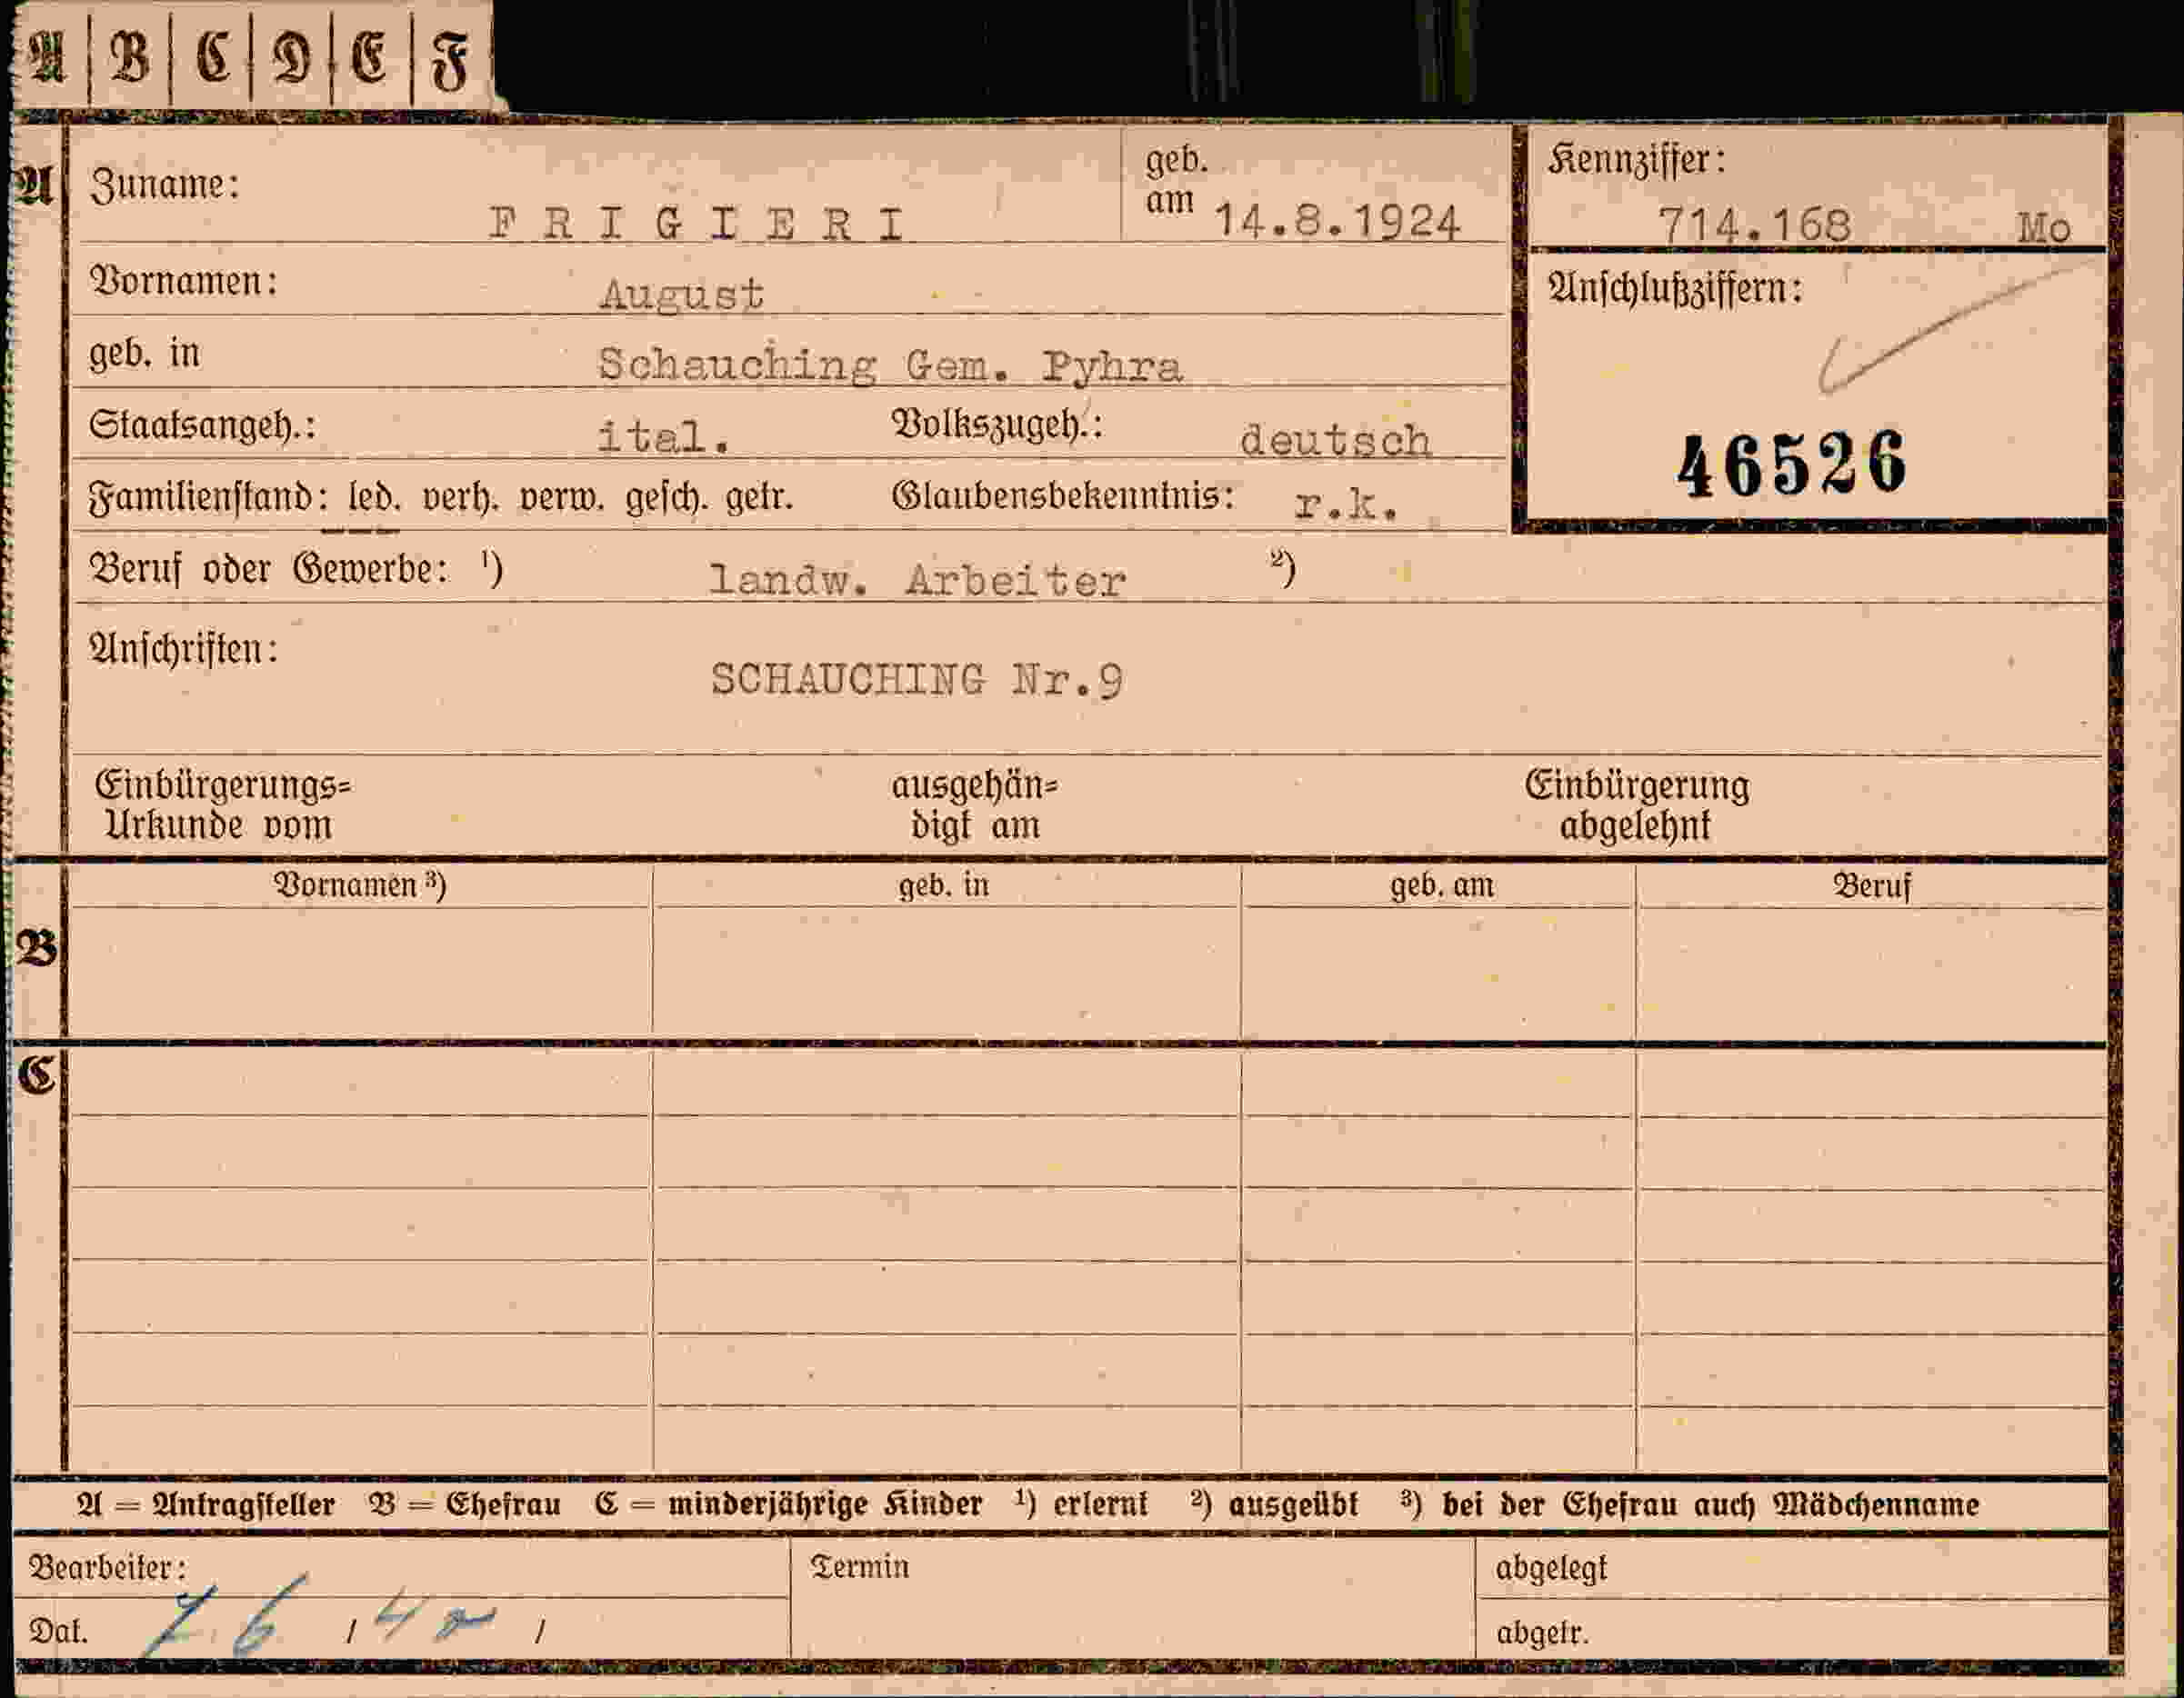 A B C D E F
A Zuname: FRIGIERI geb. am 14.8.1924 Kennziffer: 714.168 Mo
Vornamen: August Anschlußziffern:
geb. in Schauching Gem. Pyhra
Staatsangeh.: ital. Volkszugeh.: deutsch 46526
Familienstand: led. verh. verw. gesch. getr. Glaubensbekenntnis: r.k.
Beruf oder Gewerbe: 1) landw. Arbeiter 2)
Anschriften: SCHAUCHING Nr.9
Einbürgerungs= ausgehän= Einbürgerung
Urkunde vom digt am abgelehnt
Vornamen 3) geb. in geb. am Beruf
B
C
A = Antragsteller B = Ehefrau C = minderjährige Kinder 1) erlernt 2) ausgeübt 3) bei der Ehefrau auch Mädchenname
Bearbeiter: Termin abgelegt
Dat. / / abgetr.